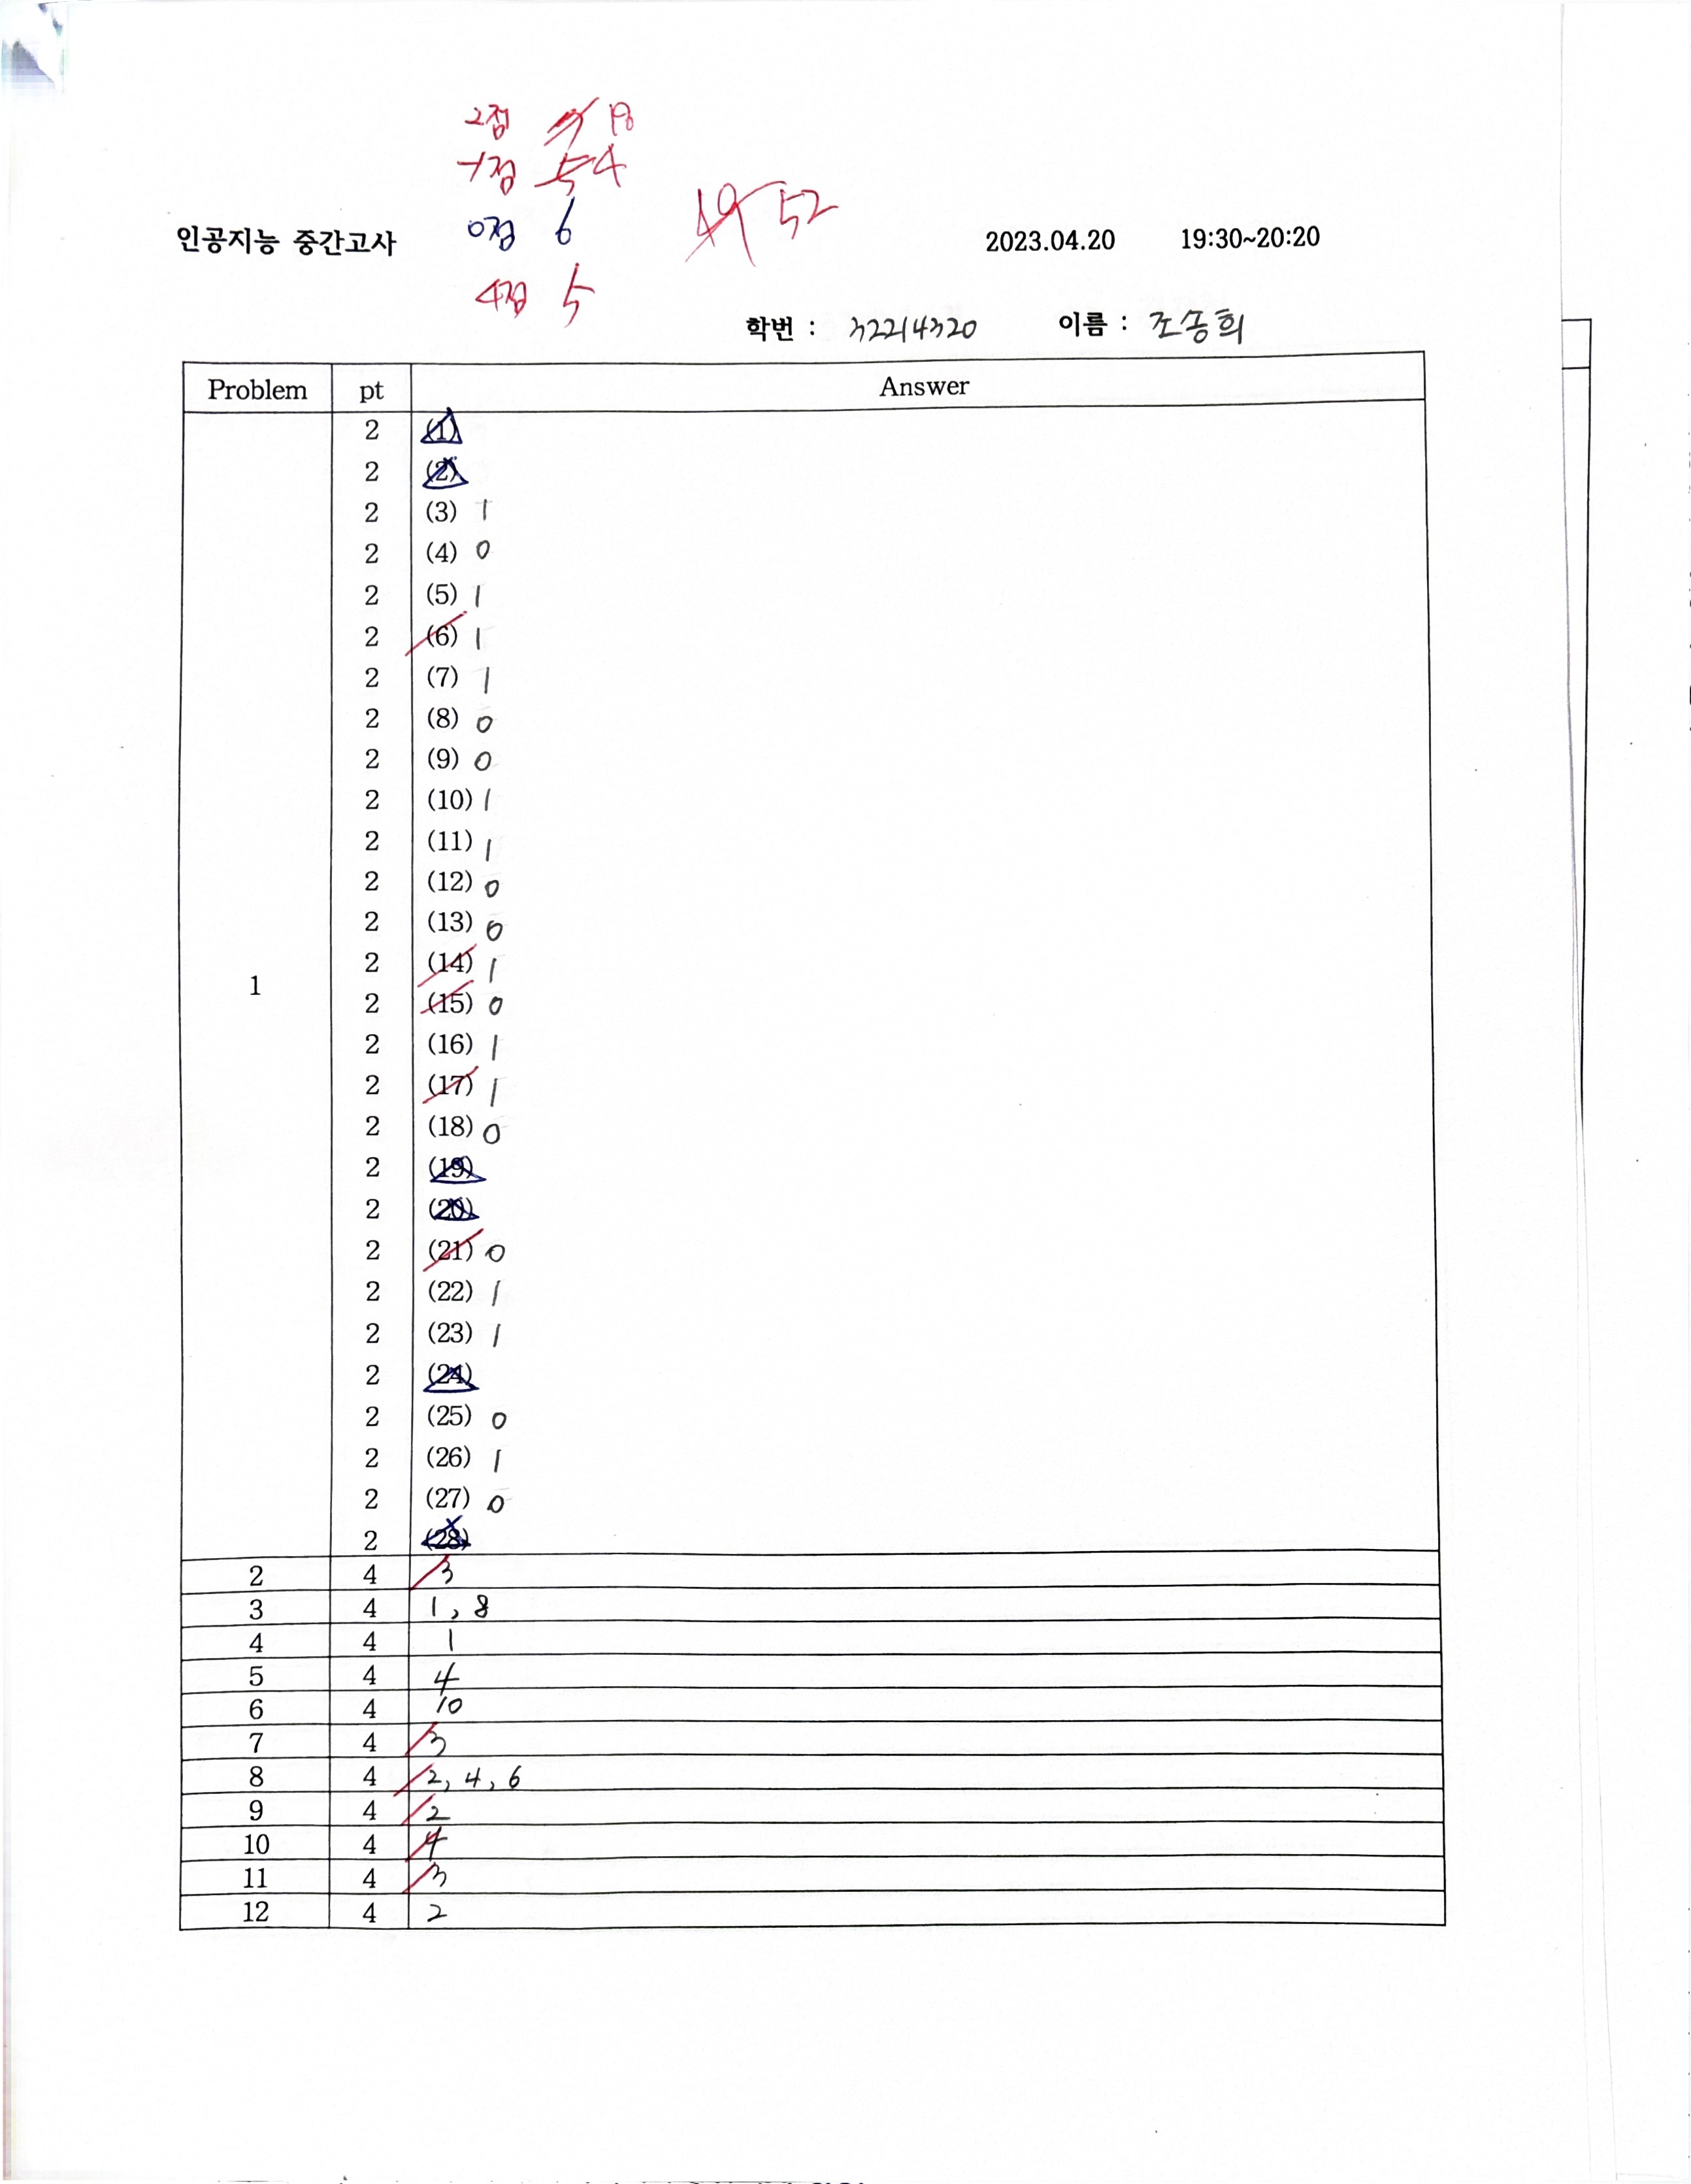 2점 18
-1점 5 4
0점 6
49 52
인공지능 중간고사 2023.04.20 19:30~20:20
4점 5
학번 : 32214320 이름 : 조송희
Problem pt Answer
1
2 (1)
2 (2)
2 (3) 1
2 (4) 0
2 (5) 1
2 (6) 1
2 (7) 1
2 (8) 0
2 (9) 0
2 (10) 1
2 (11) 1
2 (12) 0
2 (13) 0
2 (14) 1
2 (15) 0
2 (16) 1
2 (17) 1
2 (18) 0
2 (19)
2 (20)
2 (21) 0
2 (22) 1
2 (23) 1
2 (24)
2 (25) 0
2 (26) 1
2 (27) 0
2 (28)
2 4 3
3 4 1, 8
4 4 1
5 4 4
6 4 10
7 4 3
8 4 2, 4, 6
9 4 2
10 4 4
11 4 3
12 4 2